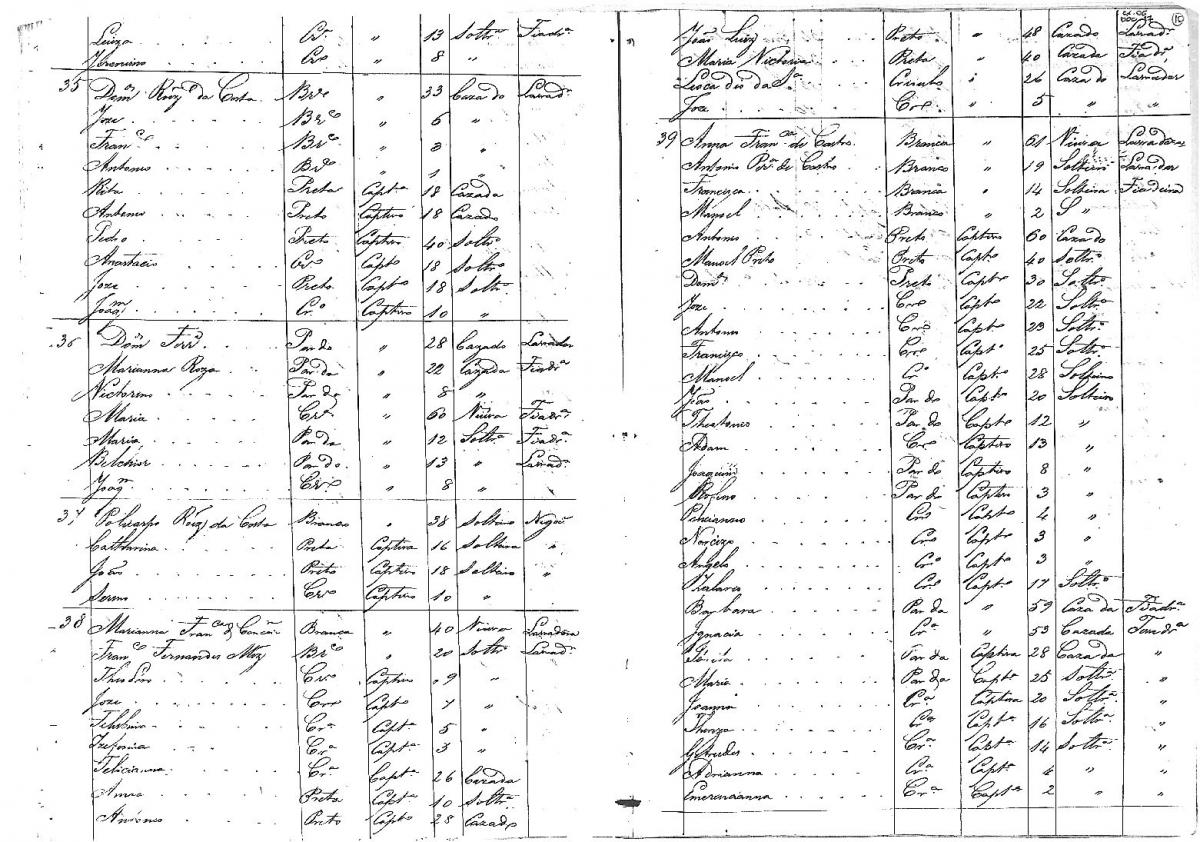 Luiza Crª " 13 Soltrª Fiadrª
Cro " 8 "
35 Domos Roiz da Costa Brco " 33 Cazado Lavador
Joze Brco " 6 "
Franco Brco " 3 "
Antonio Brco " 1 "
Rita Preta Captª 18 Cazada
Antonio Preto Captivo 18 Cazado
Pedro Preto Captivo 40 Soltro
Anastacio Cro Capto 18 Soltro
Joze Preto Capto 18 Soltro
Joaqm Cro Captivo 10 "
36 Domos Ferrª Pardo " 28 Cazado Lavrador
Marianna Roza Parda " 22 Cazada Fiadrª
Victorino Pardo " 8 "
Maria Crª " 60 Viuva Fiadrª
Maria Parda " 12 Soltrª Fiadrª
Belchior Pardo " 13 " Lavador
Joaqm Cro " 8 "
37 Policarpo Roiz da Costa Branco " 38 Solteiro Negoc
Catharina Preta Captiva 16 Solteira "
João Preto Captivo 18 Solteiro "
Cro Captivo 10 "
38 Marianna Franca da Concam Branca " 40 Viuva Lavradora
Franco Fernandes Brco " 20 Soltro Lavrador
Cro Captivo 9 "
Joze Cro Capto 7 "
Crª Captª 5 "
Crª Captª 3 "
Felicianna Crª Captª 26 Cazada
Anna Preta Captª 10 Soltrª
Antonio Preto Capto 28 Cazado
10
João Luiz Preto " 48 Cazado Lavrador
Maria Victoria Preta " 40 Cazada Fiadrª
Crioulo 26 Cazado Lavrador
Joze Cro " 5 " "
39 Anna Franca de Castro Branca " 61 Viuva Lavradora
Antonio Perª de Castro Branco " 19 Solteiro Lavrador
Francisca Branca " 14 Solteira Fiadeira
Manoel Branco " 2 S "
Antonio Preto Captivo 60 Cazado
Manoel Preto Preto Capto 40 Soltro
Domos Preto Capto 30 Soltro
Joze Cro Capto 22 Soltro
Antonio Cro Capto 23 Soltro
Francisco Cro Capto 25 Soltro
Manoel Cro Capto 28 Solteiro
João Pardo Capto 20 Solteiro
Theotonio Pardo Capto 12 "
Adam Cro Captivo 13 "
Joaquim Pardo Captivo 8 "
Rofino Pardo Captivo 3 "
Ponciano Cro Capto 4 "
Narcizo Cro Capto 3 "
Angelo Cro Capto 3 "
Cro Capto 17 Soltro
Barbara Parda " 59 Cazada Fiadrª
Ignacia Crª " 53 Cazada Fiadrª
Parda Captiva 28 Cazada "
Maria Parda Captª 25 Soltrª "
Joanna Crª Captiva 20 Soltrª "
Thereza Crª Captª 16 Soltrª "
Getrudes Crª Captª 14 Soltrª "
Adrianna Crª Captª 4 " "
Emerenciana Crª Captª 2 " "